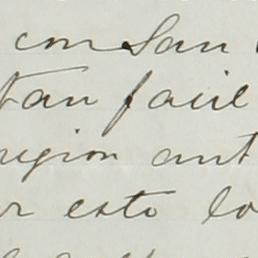 con San
tan facil
region ant
r esto lo